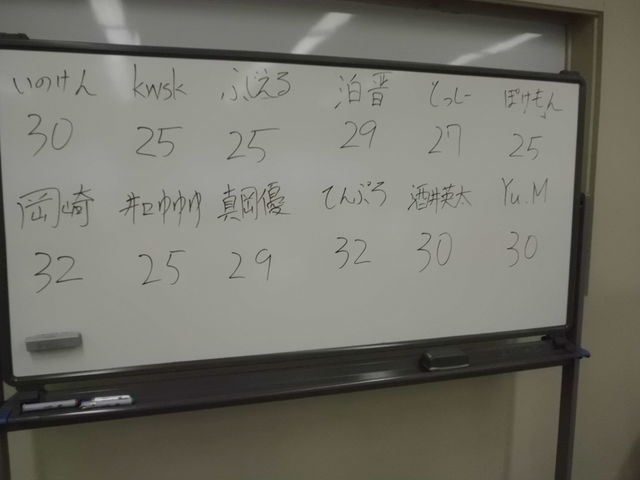 いのけん kwsk ふじえる 泊晋 とっしー ぽけもん
30 25 25 29 27 25
岡崎 井口ゆゆゆ 真岡優 てんぷら 酒井英太 Yu.M
32 25 29 32 30 30